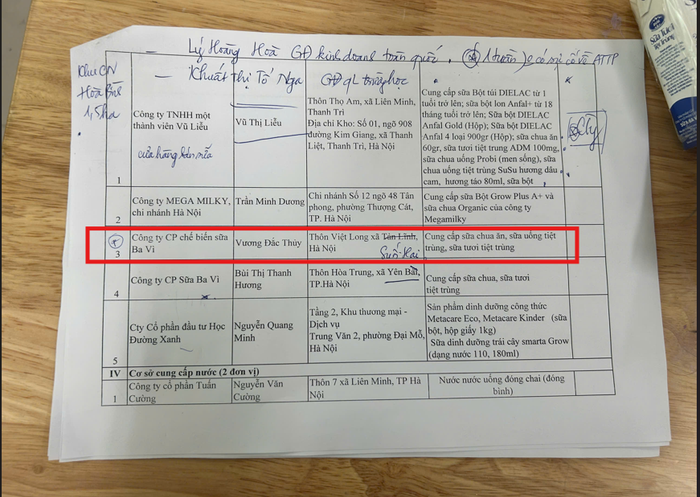 — Lý Hoàng Hoà GĐ kinh doanh toàn quốc.
— Khuất Thị Tố Nga GĐ QL trường học
Khu CN
Hoà Bình
1,5ha
1
Công ty TNHH một
thành viên Vũ Liễu
cửa hàng bán
Vũ Thị Liễu
Thôn Thọ Am, xã Liên Minh,
Thanh Trì
Địa chỉ Kho: Số 01, ngõ 908
đường Kim Giang, xã Thanh
Liệt, Thanh Trì, Hà Nội
Cung cấp sữa Bột túi DIELAC từ 1
tuổi trở lên; sữa bột lon Anfal+ từ 18
tháng tuổi trở lên; Sữa bột DIELAC
Anfal Gold (Hộp); Sữa bột DIELAC
Anfal 4 loại 900gr (Hộp); sữa chua ăn
60gr, sữa tươi tiệt trung ADM 100mg,
sữa chua uống Probi (men sống), sữa
chua uống tiệt trùng SuSu hương dâu
cam, hương táo 80ml, sữa bột
2
Công ty MEGA MILKY,
chi nhánh Hà Nội
Trần Minh Dương
Chi nhánh Số 12 ngõ 48 Tân
phong, phường Thượng Cát,
TP. Hà Nội
Cung cấp Sữa Bột Grow Plus A+ và
sữa chua Organic của công ty
Megamilky
3
Công ty CP chế biến sữa
Ba Vì
Vương Đắc Thủy
Thôn Việt Long xã Tản Lĩnh,
Hà Nội
Suối Hai
Cung cấp sữa chua ăn, sữa uống tiệt
trùng, sữa tươi tiệt trùng
4
Công ty CP Sữa Ba Vì
Bùi Thị Thanh
Hương
Thôn Hòa Trung, xã Yên Bài,
TP.Hà Nội
Cung cấp sữa chua, sữa tươi
tiệt trùng
5
Cty Cổ phần đầu tư Học
Đường Xanh
Nguyễn Quang
Minh
Tầng 2, Khu thương mại -
Dịch vụ
Trung Văn 2, phường Đại Mỗ,
Hà Nội
Sản phẩm dinh dưỡng công thức
Metacare Eco, Metacare Kinder (sữa
bột, hộp giấy 1kg)
Sữa dinh dưỡng trái cây smarta Grow
(dạng nước 110, 180ml)
IV Cơ sở cung cấp nước (2 đơn vị)
1
Công ty cổ phần Tuấn
Cường
Nguyễn Văn
Cường
Thôn 7 xã Liên Minh, TP Hà
Nội
Nước nước uống đóng chai (đóng
bình)